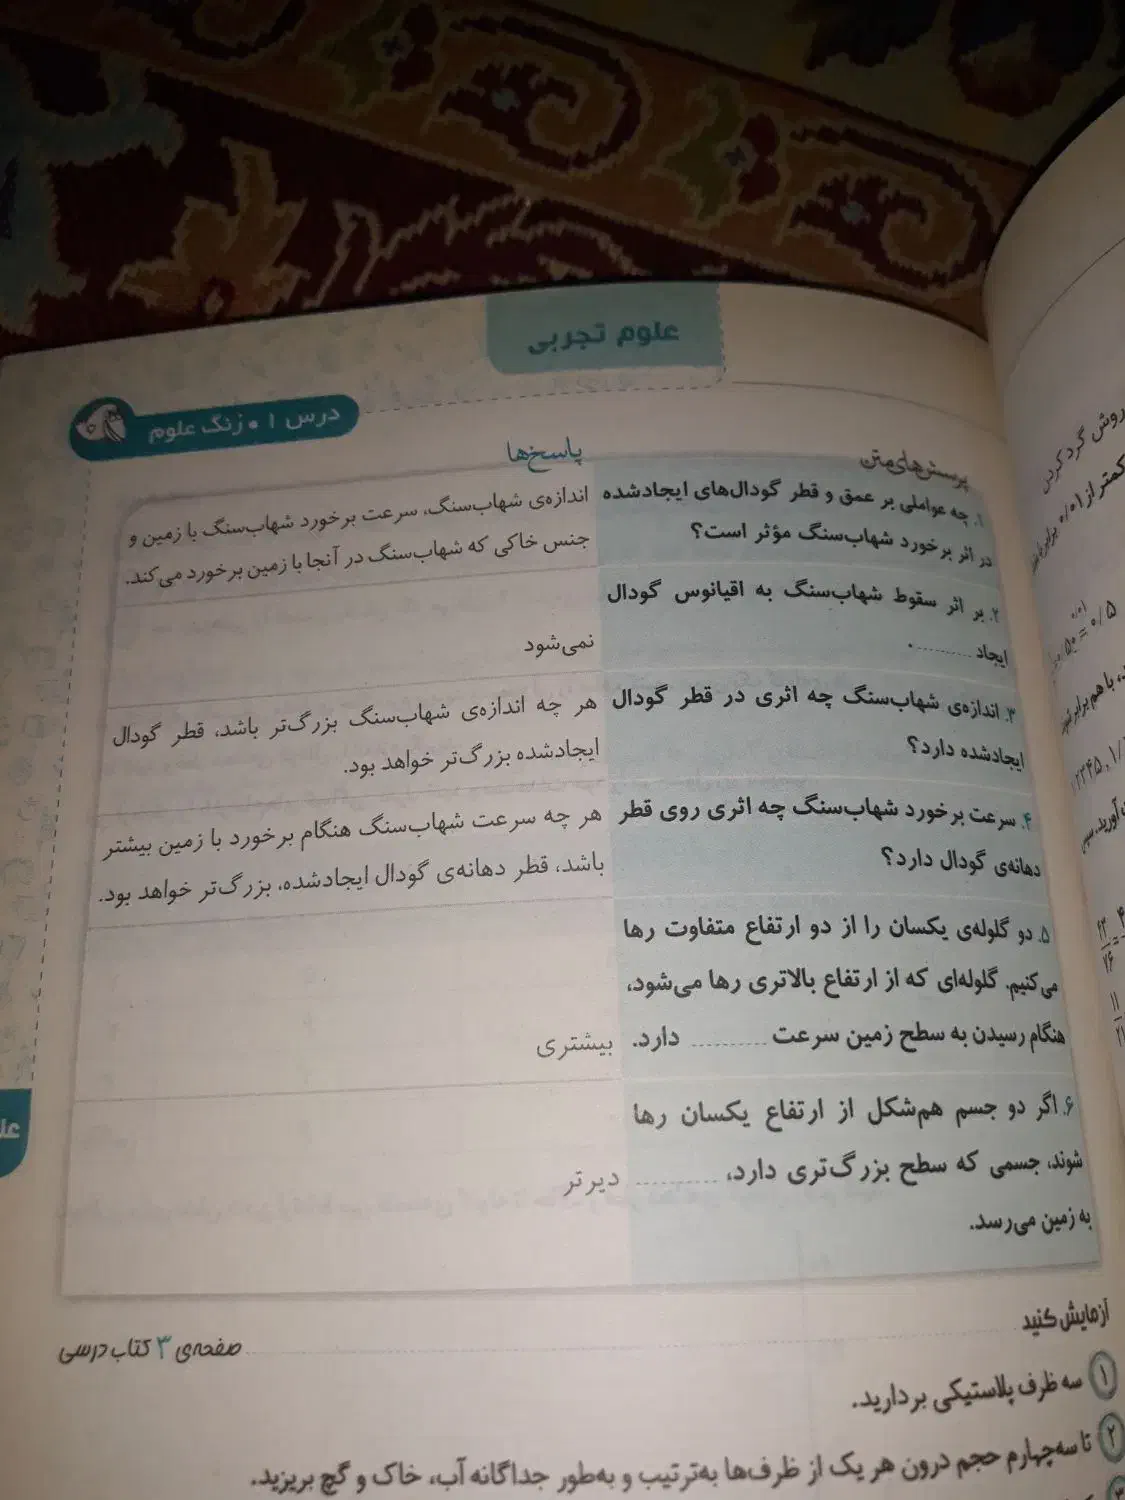 علوم تجربی
درس ۱ • زنگ علوم
پرسش‌های متن
پاسخ‌ها
۱. چه عواملی بر عمق و قطر گودال‌های ایجادشده
در اثر برخورد شهاب‌سنگ مؤثر است؟
اندازه‌ی شهاب‌سنگ، سرعت برخورد شهاب‌سنگ با زمین و
جنس خاکی که شهاب‌سنگ در آنجا با زمین برخورد می‌کند.
۲. بر اثر سقوط شهاب‌سنگ به اقیانوس گودال
ایجاد .......... .
نمی‌شود
۳. اندازه‌ی شهاب‌سنگ چه اثری در قطر گودال
ایجادشده دارد؟
هر چه اندازه‌ی شهاب‌سنگ بزرگ‌تر باشد، قطر گودال
ایجادشده بزرگ‌تر خواهد بود.
۴. سرعت برخورد شهاب‌سنگ چه اثری روی قطر
دهانه‌ی گودال دارد؟
هر چه سرعت شهاب‌سنگ هنگام برخورد با زمین بیشتر
باشد، قطر دهانه‌ی گودال ایجادشده، بزرگ‌تر خواهد بود.
۵. دو گلوله‌ی یکسان را از دو ارتفاع متفاوت رها
می‌کنیم. گلوله‌ای که از ارتفاع بالاتری رها می‌شود،
هنگام رسیدن به سطح زمین سرعت .......... دارد.
بیشتری
۶. اگر دو جسم هم‌شکل از ارتفاع یکسان رها
شوند، جسمی که سطح بزرگ‌تری دارد، ..........
به زمین می‌رسد.
دیرتر
آزمایش کنید
صفحه‌ی ۳ کتاب درسی
۱ سه ظرف پلاستیکی بردارید.
۲ تا سه‌چهارم حجم درون هر یک از ظرف‌ها به‌ترتیب و به‌طور جداگانه آب، خاک و گچ بریزید.
۳
روش گرد کردن
کمتر از ۰/۰۱
با هم برابر